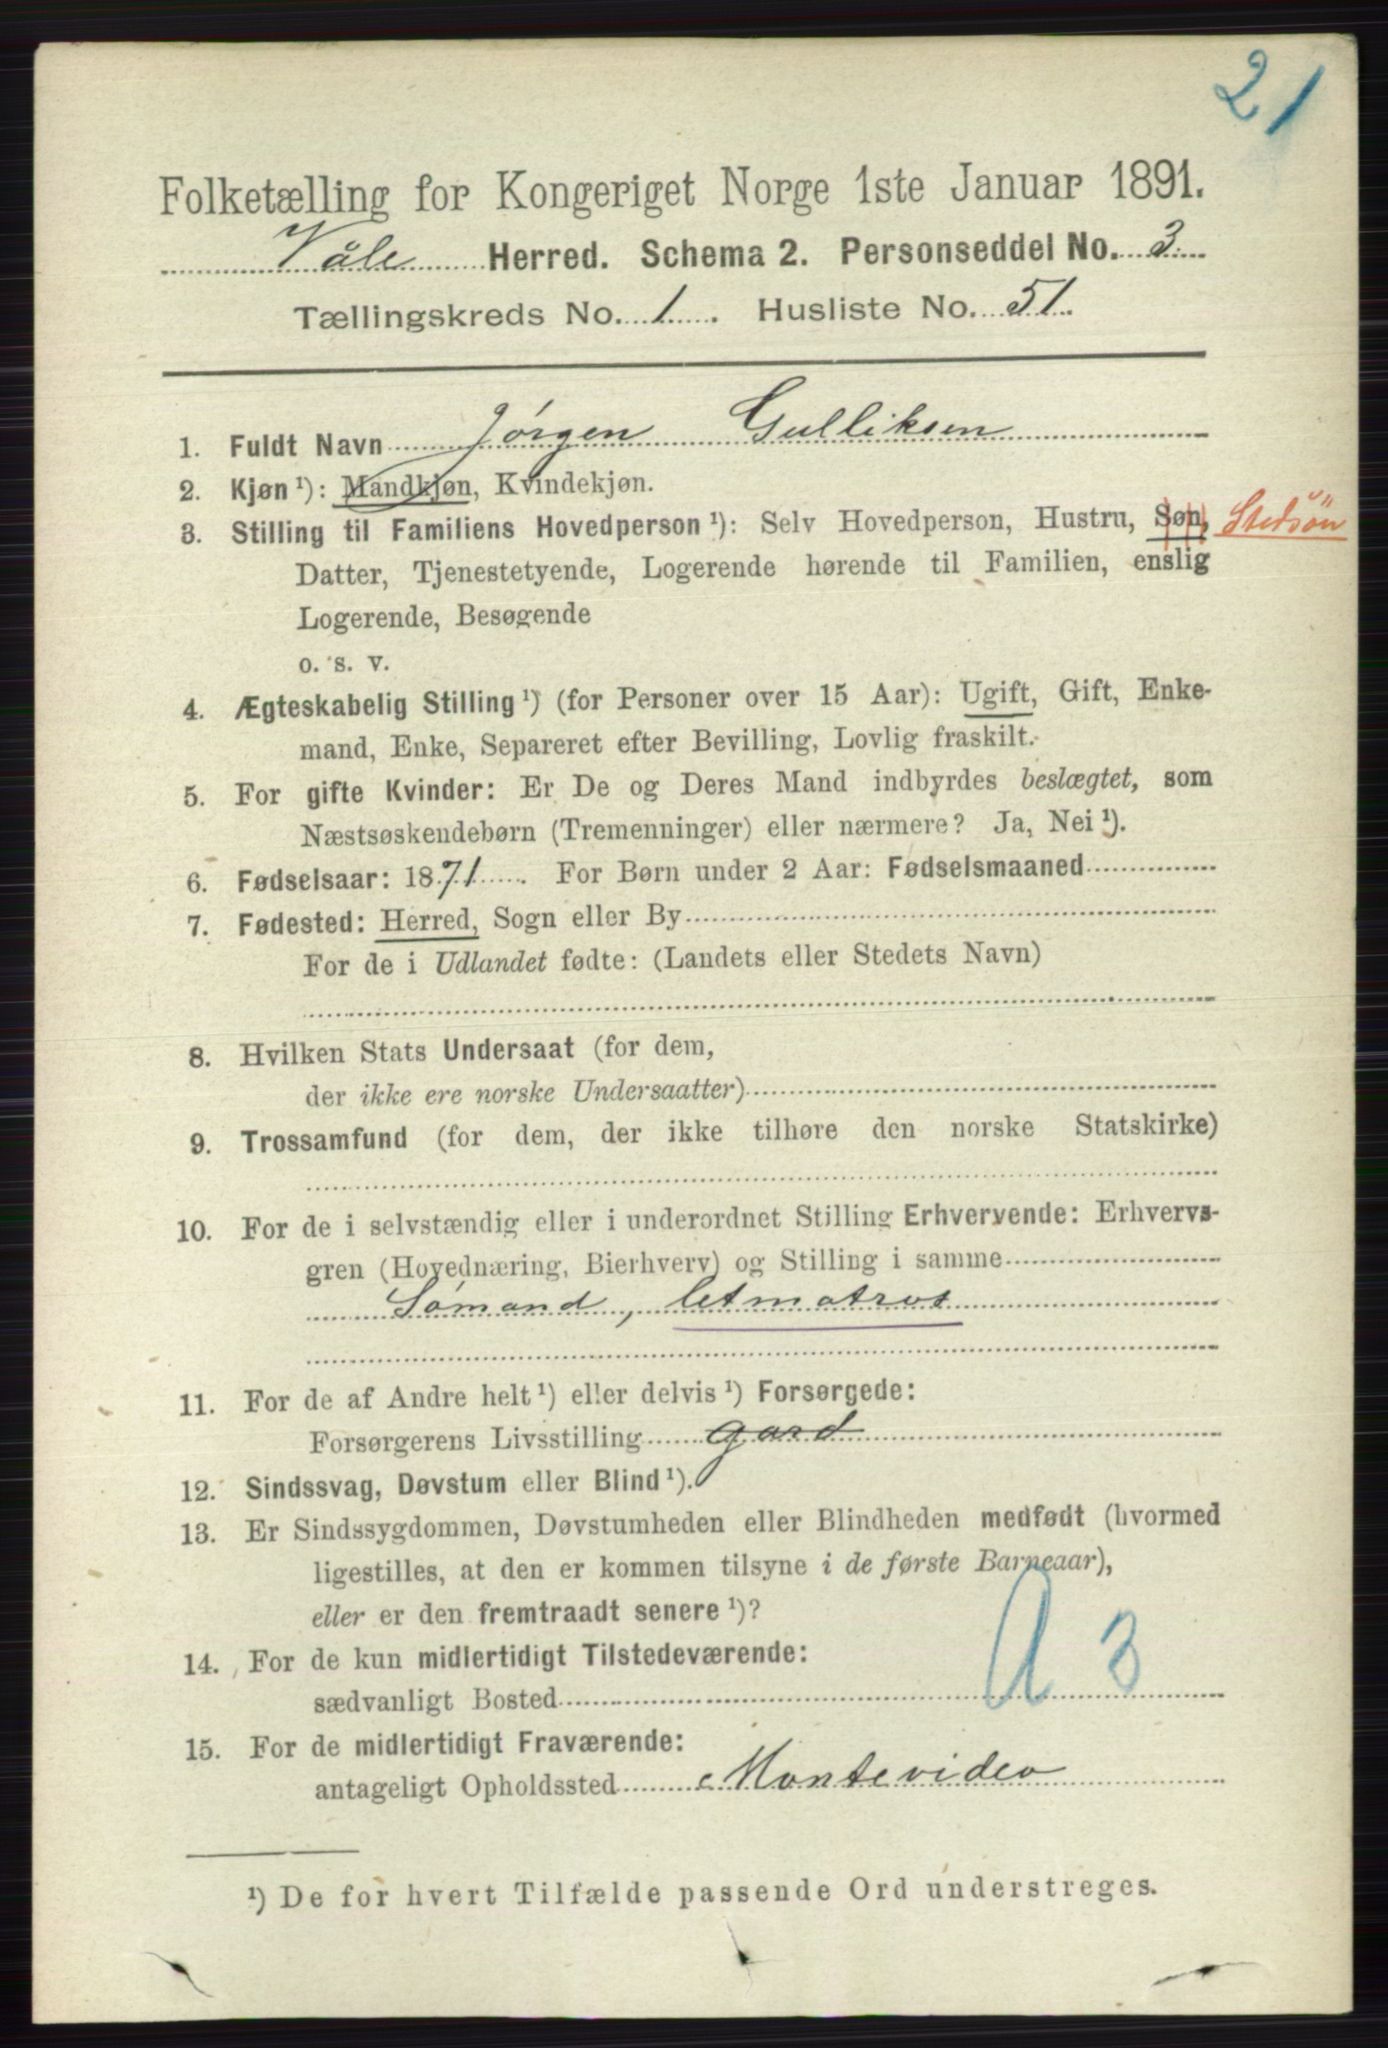 21
Folketælling for Kongeriget Norge 1ste Januar 1891.
Våle Herred. Schema 2. Personseddel No. 3
Tællingskreds No. 1. Husliste No. 51.
1. Fuldt Navn Jørgen Gulliksen
2. Kjøn ¹): Mandkjøn, Kvindekjøn.
3. Stilling til Familiens Hovedperson ¹): Selv Hovedperson, Hustru, Søn, Stedsön
Datter, Tjenestetyende, Logerende hørende til Familien, enslig
Logerende, Besøgende
o. s. v.
4. Ægteskabelig Stilling ¹) (for Personer over 15 Aar): Ugift, Gift, Enke-
mand, Enke, Separeret efter Bevilling, Lovlig fraskilt.
5. For gifte Kvinder: Er De og Deres Mand indbyrdes beslægtet, som
Næstsøskendebørn (Tremenninger) eller nærmere? Ja, Nei ¹).
6. Fødselsaar: 1871. For Børn under 2 Aar: Fødselsmaaned
7. Fødested: Herred, Sogn eller By
For de i Udlandet fødte: (Landets eller Stedets Navn)
8. Hvilken Stats Undersaat (for dem,
der ikke ere norske Undersaatter)
9. Trossamfund (for dem, der ikke tilhøre den norske Statskirke)
10. For de i selvstændig eller i underordnet Stilling Erhvervende: Erhvervs-
gren (Hovednæring, Bierhverv) og Stilling i samme
Sømand, letmatros
11. For de af Andre helt ¹) eller delvis ¹) Forsørgede:
Forsørgerens Livsstilling gard
12. Sindssvag, Døvstum eller Blind ¹).
13. Er Sindssygdommen, Døvstumheden eller Blindheden medfødt (hvormed
ligestilles, at den er kommen tilsyne i de første Barneaar),
eller er den fremtraadt senere ¹)?
14. For de kun midlertidigt Tilstedeværende:
sædvanligt Bosted
A 3
15. For de midlertidigt Fraværende:
antageligt Opholdssted Montevideo
¹) De for hvert Tilfælde passende Ord understreges.